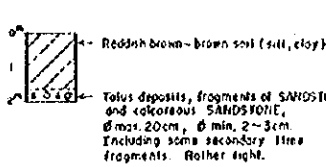 0m
Reddish brown~brown soil (silt, clay)
1
2m
Talus deposits, fragments of SANDSTO
and calcareous SANDSTONE,
Ø max. 20cm, Ø min. 2~3cm.
Including some secondary lime
fragments. Rather tight.